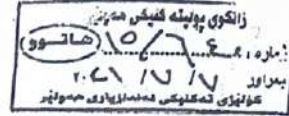 زانكۆی پۆلیتەكنیكی هەولێر
ژمارە: ١٥/٦ هاتوو
بەروار ٧/٧/٢٠٢١
كۆلێژی تەكنیكی ئەندازیاری هەولێر